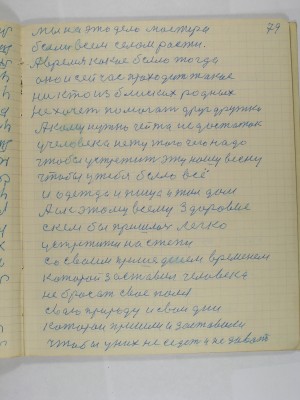 79
мелка это дело мастера
были всем селом расти.
Время какое было тогда
оно и сейчас приходит такое
никто из близких родных
не хочет помогать друг дружке
А кому нужно чей та недостаток
у человека нету того чего надо
чтобы устретит эту нашу весну
чтобы у тебя было всё
и одежда и пища и том дом
А к этому всему здоровье
с кем бы пришлось легко
устретит на степи
со своем пришедшем временем
которой заставил человека
не бросат свое поля
свою природу и свои дни
которои пришли и заставили
чтобы у них не сидет а не давать